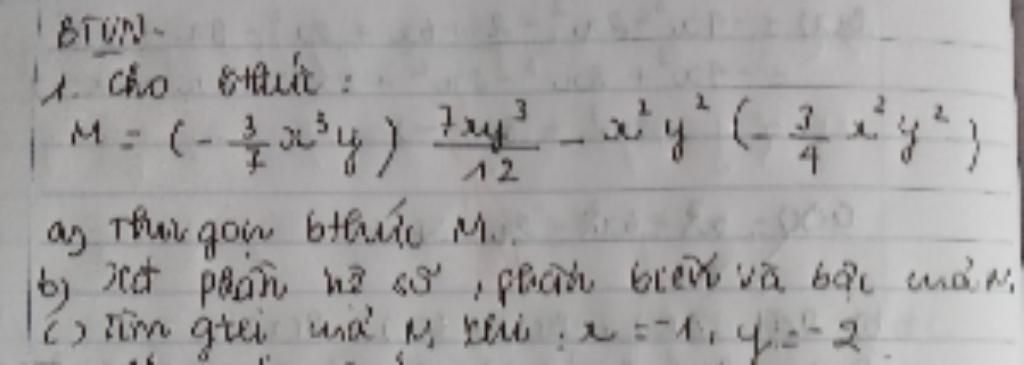 BTVN.
1. Cho bthức :
M = (- 3/7 x³y) 7xy³/12 - x²y² (- 3/4 x²y²)
a) Thu gọn bthức M.
b) Xđ phần hệ số, phần biến và bậc của M.
c) Tìm gtrị của M khi : x = -1, y = - 2